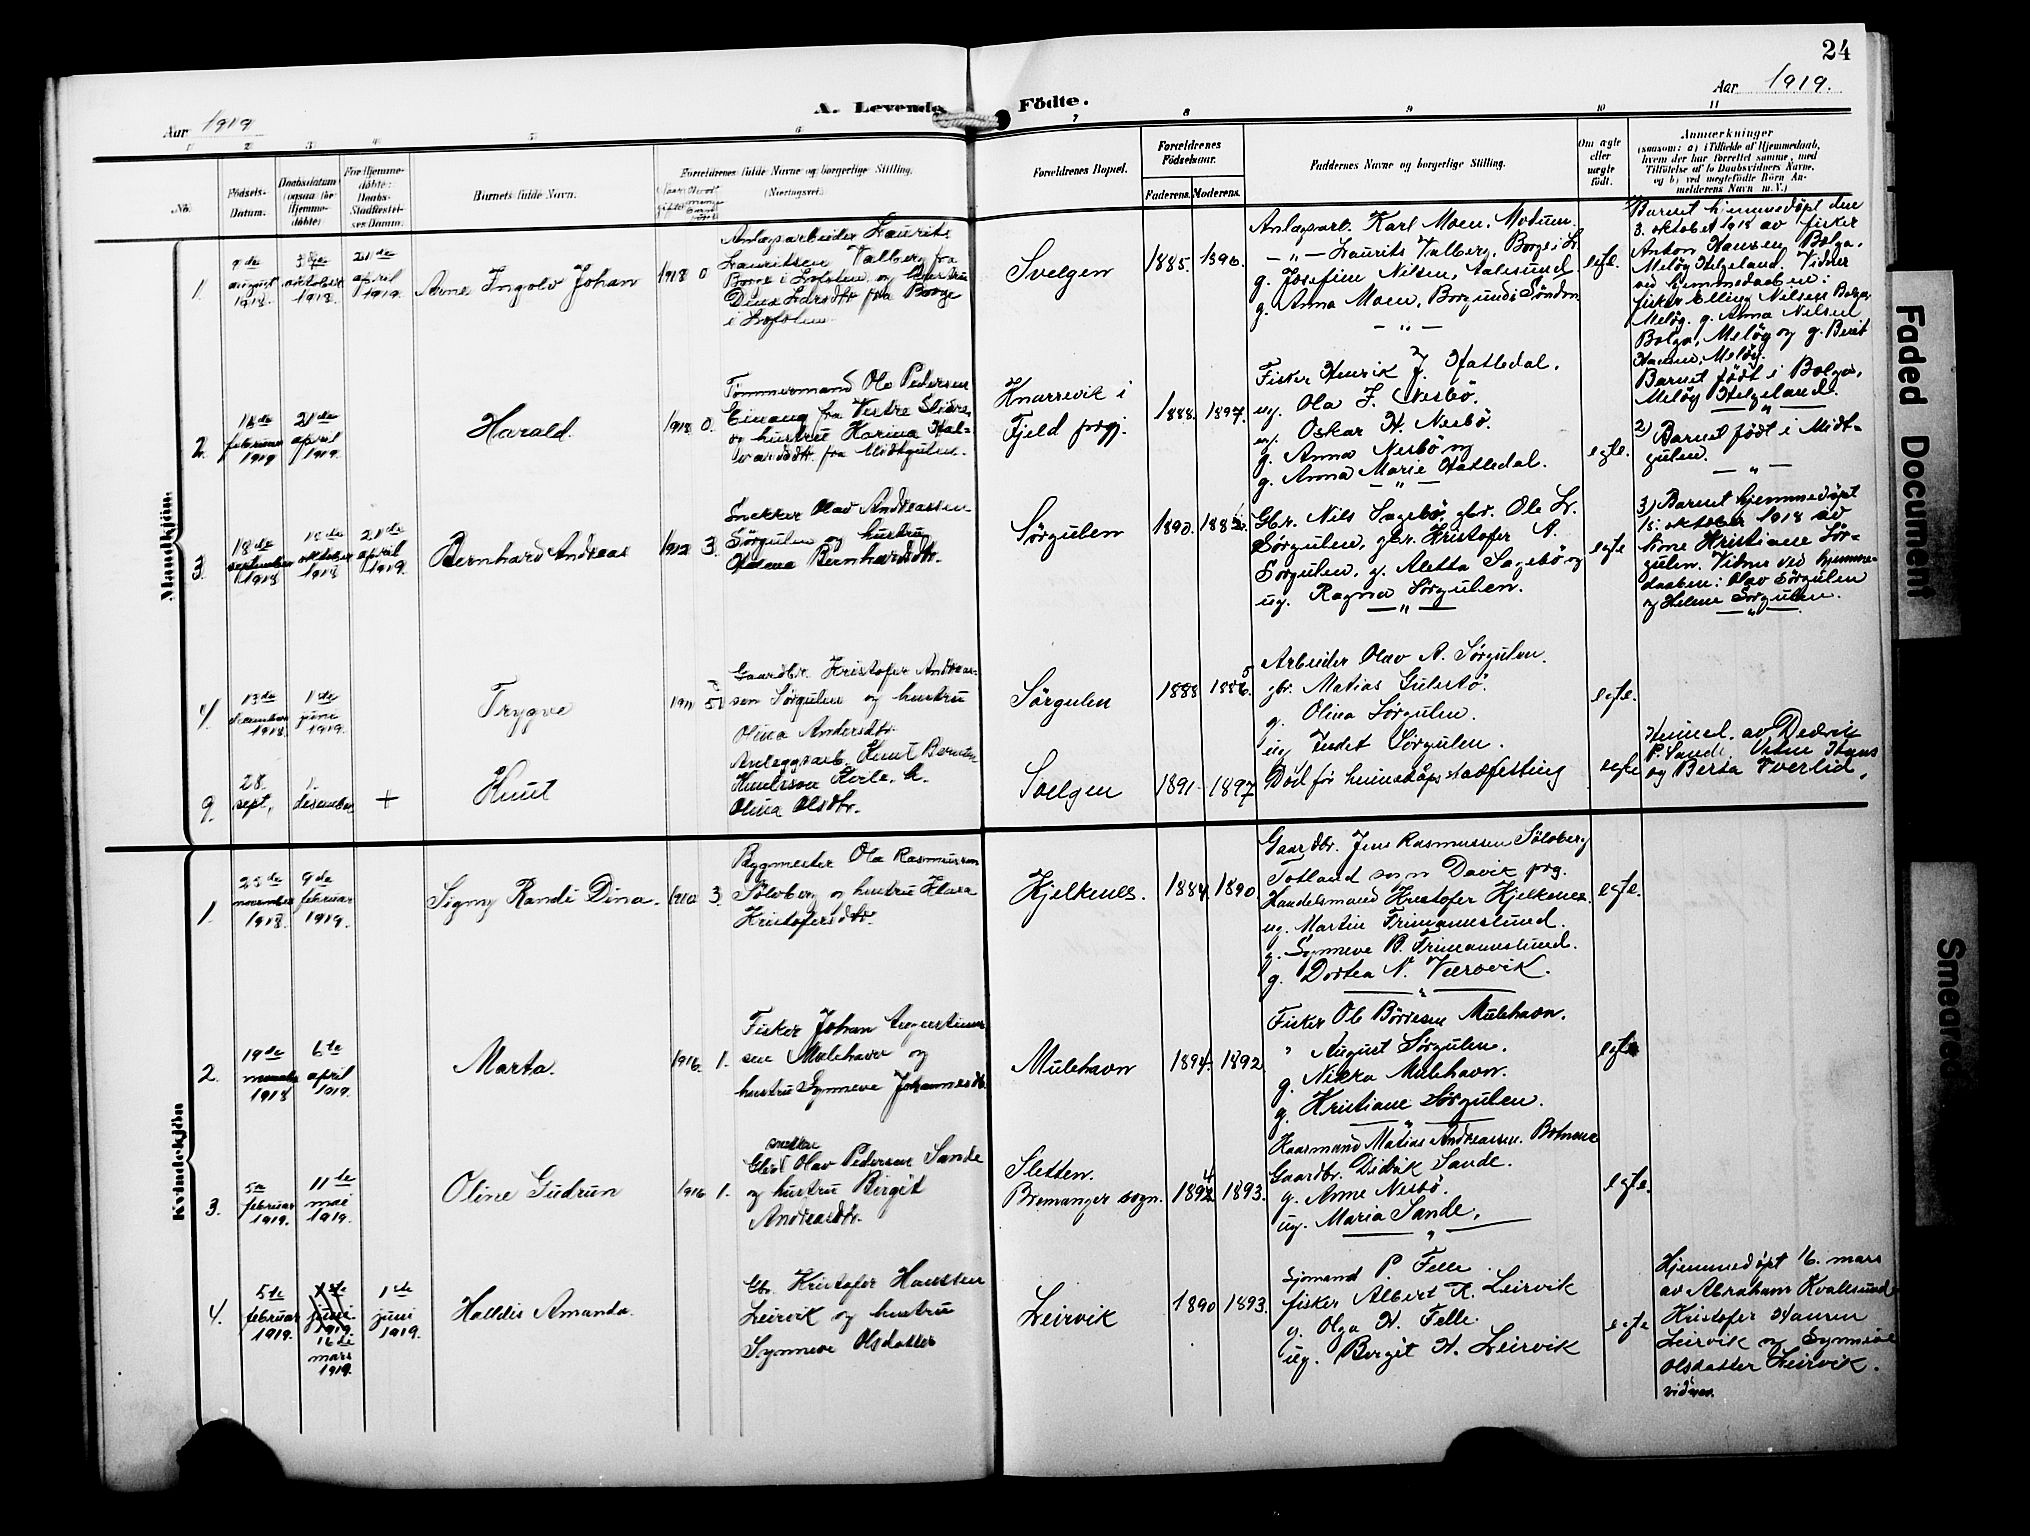 24
Aar 1919.
A. Levende Födte.
Aar 1919
1 2 3 4 5 6 7 8 9 10 11
No.
Födsels-
Datum.
Daabsdatum
(ogsaa for
Hjemme-
döbte)
For Hjemme-
döbte:
Daabs-
Stadfæstel-
ses Datum.
Barnets fulde Navn.
Forældrenes fulde Navne og borgerlige Stilling.
(Næringsvei)
Forældrenes Bopæl.
Forældrenes
Födselsaar.
Faderens. Moderens.
Faddernes Navne og borgerlige Stilling.
Om ægte
eller
uægte
født.
Anmærkninger
(saasom: a) i Tilfælde af Hjemmedaab,
hvem der har forrettet samme, med
Tilföielse af to Daabsvidners Navne,
og b) ved uegtefödte Börn An-
melderens Navn m. V.)
Mandkjön.
1.
9de
august
1918.
3dje
oktober
1918.
21de
april
1919.
Arne Ingolv Johan
1918 0
Anlægsarbeider Laurits
Lauritsen Valberg fra
Borge i Lofoten og hustru
Dina Larsdtr fra Borge
i Lofoten.
Svelgen
1885. 1896.
Anlægsarb. Karl Moen, Modum
— „ — Laurits Valberg, Borge i L.
g. Josefine Nilsen, Aalesund.
g. Anna Moen, Borgund i Søndm
— „ —
egte.
Barnet hjemmedøpt den
3. oktober 1918 av fisker
Anton Hansen Bolga,
Meløy Helgeland. Vidner
ved hjemmedaaben:
fisker Elling Nilsen Bolga
Meløy. g. Anna Nilsen
Bolga, Meløy og g. Berit
Hansen, Meløy.
Barnet født i Bolga,
Meløy Helgeland.
— „ —
2.
februar
1919
21de
april
1919.
Harald.
1918 0.
Tømmermand Ole Pedersen
Einang fra Vestre Slidre
og hustru Karina Hal-
vardsdtr. fra Midtgulen.
Knarrevik i
Fjeld prgj.
1888. 1897.
Fisker Henrik J. Hatledal.
ug. Ola J. Nesbö.
ug. Oskar H. Nesbö.
g. Anna Nesbö og
g. Anna Marie Hatledal.
— „ —
egte.
2) Barnet født i Midt-
gulen.
— „ —
3.
18de
september
1918
18de
oktober
1918
21de
april
1919.
Bernhard Andreas
1912 3.
Snekker Olav Andreassen
Sørgulen og hustru
Bernhardsdtr.
Sørgulen
1890.
Gbr. Nils Sagebø, gbr. Ole L.
Sørgulen, gbr. Kristofer A.
Sørgulen, g. Aletta Sagebø og
ug. Ragna Sørgulen.
— „ —
egte
3) Barnet hjemmedøpt
18. oktober 1918 av
kone Kristiane Sør-
gulen. Vidner ved hjemme-
daaben: Olav Sørgulen
og Helene Sørgulen.
— „ —
4.
13de
december
1918.
1ste
juni
1919.
Trygve
1911 5
Gaardbr. Kristofer Andreas-
sen Sørgulen og hustru
Olina Andersdtr.
Sørgulen
1888 1886.
5
Arbeider Olav A. Sørgulen.
gbr. Matias Gulestö.
g. Olina Sørgulen.
ug Indet Sørgulen.
egte.
9.
28.
sept.
1.
desember
+
Knut
Anleggsarb. Knut Berntin
Knutsson
Olina Olsdtr.
Svelgen
1891 1897
Død før heimedåps stadfesting
egte
Heimed. av Dedrik
P. Sande. Vitne Hans
og Berta Tverlid.
Kvindekjön
1.
25de
november
1918.
9de
februar
1919.
Signy Randi Dina.
1910. 3.
Bygmester Ola Rasmussen
Sölvberg og hustru Klara
Kristofersdtr.
Hjelkenes.
1884. 1890.
Gaardbr. Jens Rasmussen Sölvberg
Totland sogn Davik prg.
Handelsmand Kristofer Hjelkenes.
ug. Martin Frimannslund.
g. Synneve B. Frimannslund.
g. Dortea N. Vaarvik.
— „ —
egte.
2.
19de
1918
6te
april
1919.
Marta.
1916. 1.
Fisker Johan Augustinus-
sen Mulehavn og
hustru Synneve Johannesdtr.
Mulehavn
1894. 1892
Fisker Ole Börresen Mulehavn.
„ August Sørgulen.
g. Nikka Mulehavn.
g. Kristiane Sørgulen.
— „ —
egte
3.
5te
februar
1919.
11te
mai
1919.
Oline Gudrun
1916 1.
snekker
Olav Pedersen Sande
og hustru Birgit
Andreasdtr.
Sletten.
Bremanger sogn.
1892 1893.
4
Haarmand Matias Andreassen. Botnene
Gaardbr. Didrik Sande.
g. Anne Nesbö.
ug. Maria Sande.
— „ —
egte.
4.
5te
februar
1919.
1ste
juni
1919.
16de
mars
1919.
1ste
juni
1919.
Halldis Amanda.
Gbr. Kristofer Hanssen
Leirvik og hustru
Synneve Olsdatter
Leirvik
1890 1893.
Sjömand P. Felle
fisker Albert K. Leirvik
g. Olga H. Felle.
ug. Bergit H. Leirvik
egte
Hjemmedøpt 16. mars
av Abraham Kvalsund
Kristofer Hansen
Leirvik og Synneve
Olsdatter Leirvik.
vidner.
Faded Document
Smeared